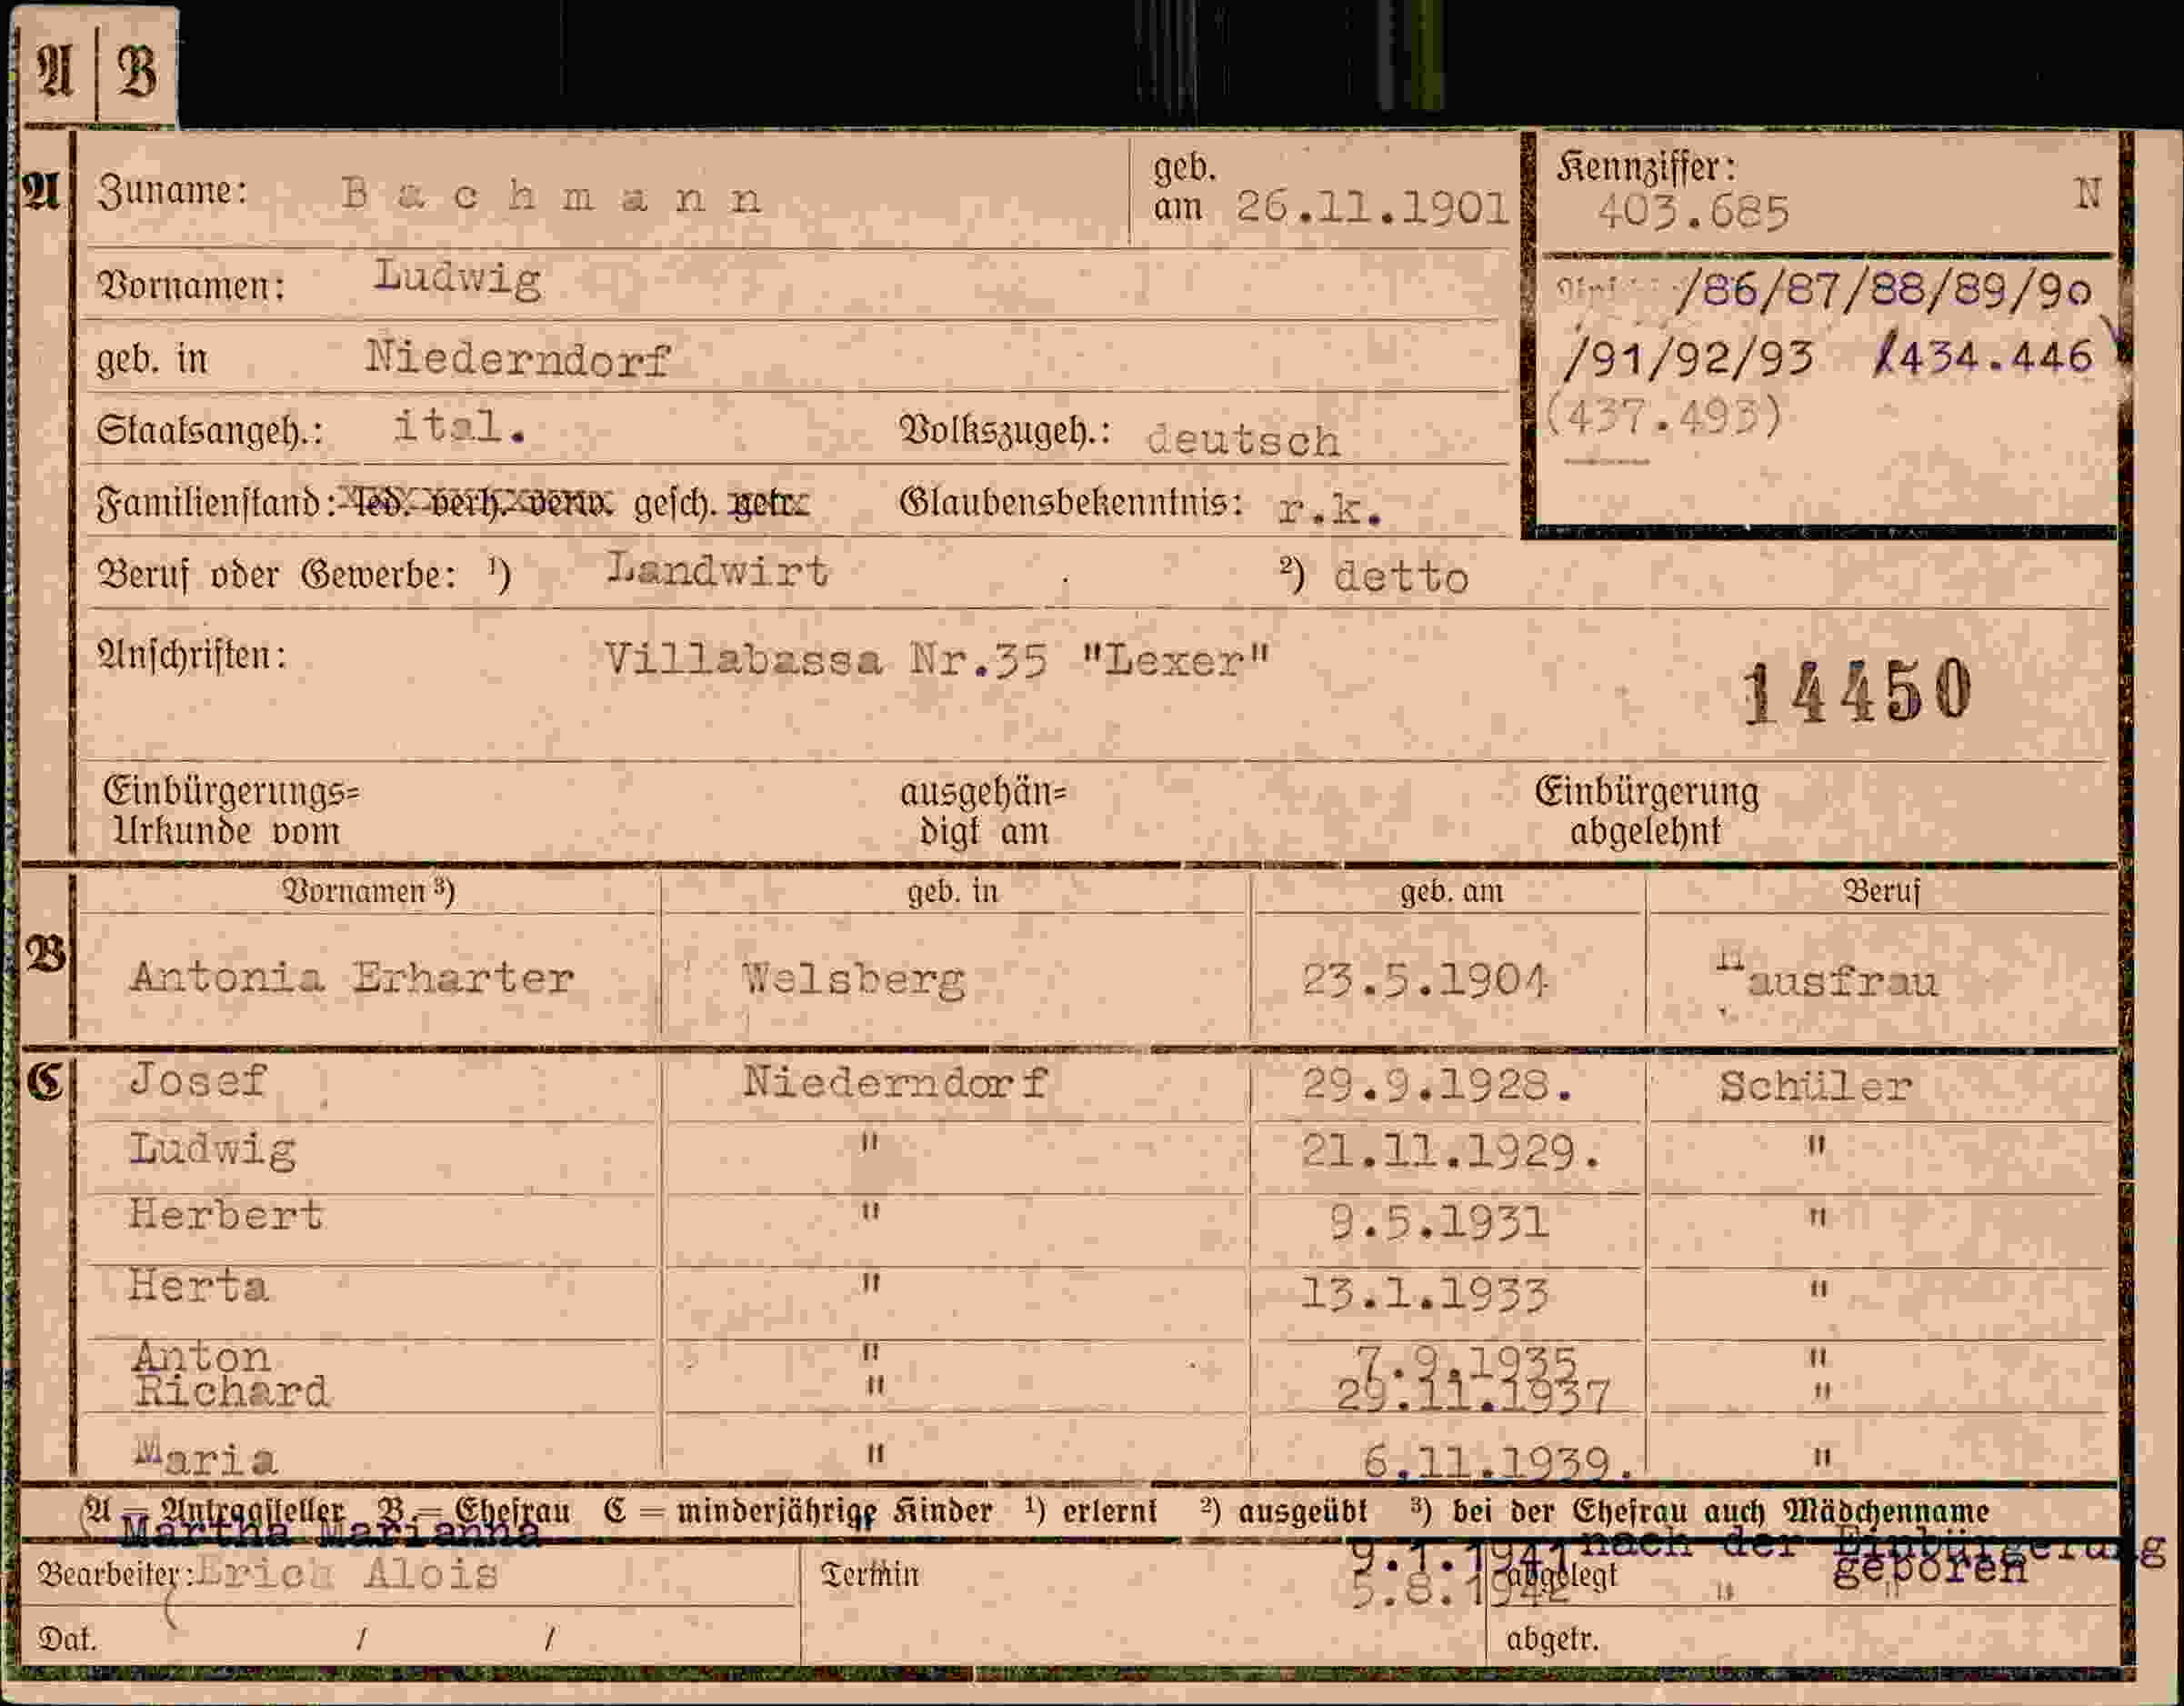 A | B
A Zuname: Bachmann geb. am 26.11.1901 Kennziffer: 403.685 N
Vornamen: Ludwig /86/87/88/89/90
geb. in Niederndorf /91/92/93 /434.446
Staatsangeh.: ital. Volkszugeh.: deutsch (437.493)
Familienstand: led. verh. verw. gesch. getr. Glaubensbekenntnis: r.k.
Beruf oder Gewerbe: ¹) Landwirt ²) detto
Anschriften: Villabassa Nr.35 "Lexer"
14450
Einbürgerungs= ausgehän= Einbürgerung
Urkunde vom digt am abgelehnt
Vornamen ³) geb. in geb. am Beruf
B Antonia Erharter Welsberg 23.5.1904 Hausfrau
C Josef Niederndorf 29.9.1928. Schüler
Ludwig " 21.11.1929. "
Herbert " 9.5.1931 "
Herta " 13.1.1933 "
Anton " 7.9.1935 "
Richard " 29.11.1937 "
Maria " 6.11.1939. "
A = Antragsteller B = Ehefrau C = minderjährige Kinder ¹) erlernt ²) ausgeübt ³) bei der Ehefrau auch Mädchenname
Martha Marianna 9.1.1941 nach der Einbürgerung
geboren
Bearbeiter: Erich Alois Termin 5.8.1942 abgelegt " "
Dat. / / abgetr.